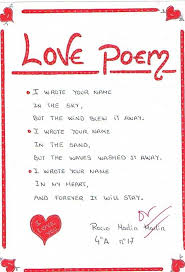 LOVE POEM
I WROTE YOUR NAME
IN THE SKY,
BUT THE WIND BLEW IT AWAY.
I WROTE YOUR NAME
IN THE SAND,
BUT THE WAVES WASHED IT AWAY.
I WROTE YOUR NAME
IN MY HEART,
AND FOREVER IT WILL STAY.
I love you
Rocio Media
4ºA nº17